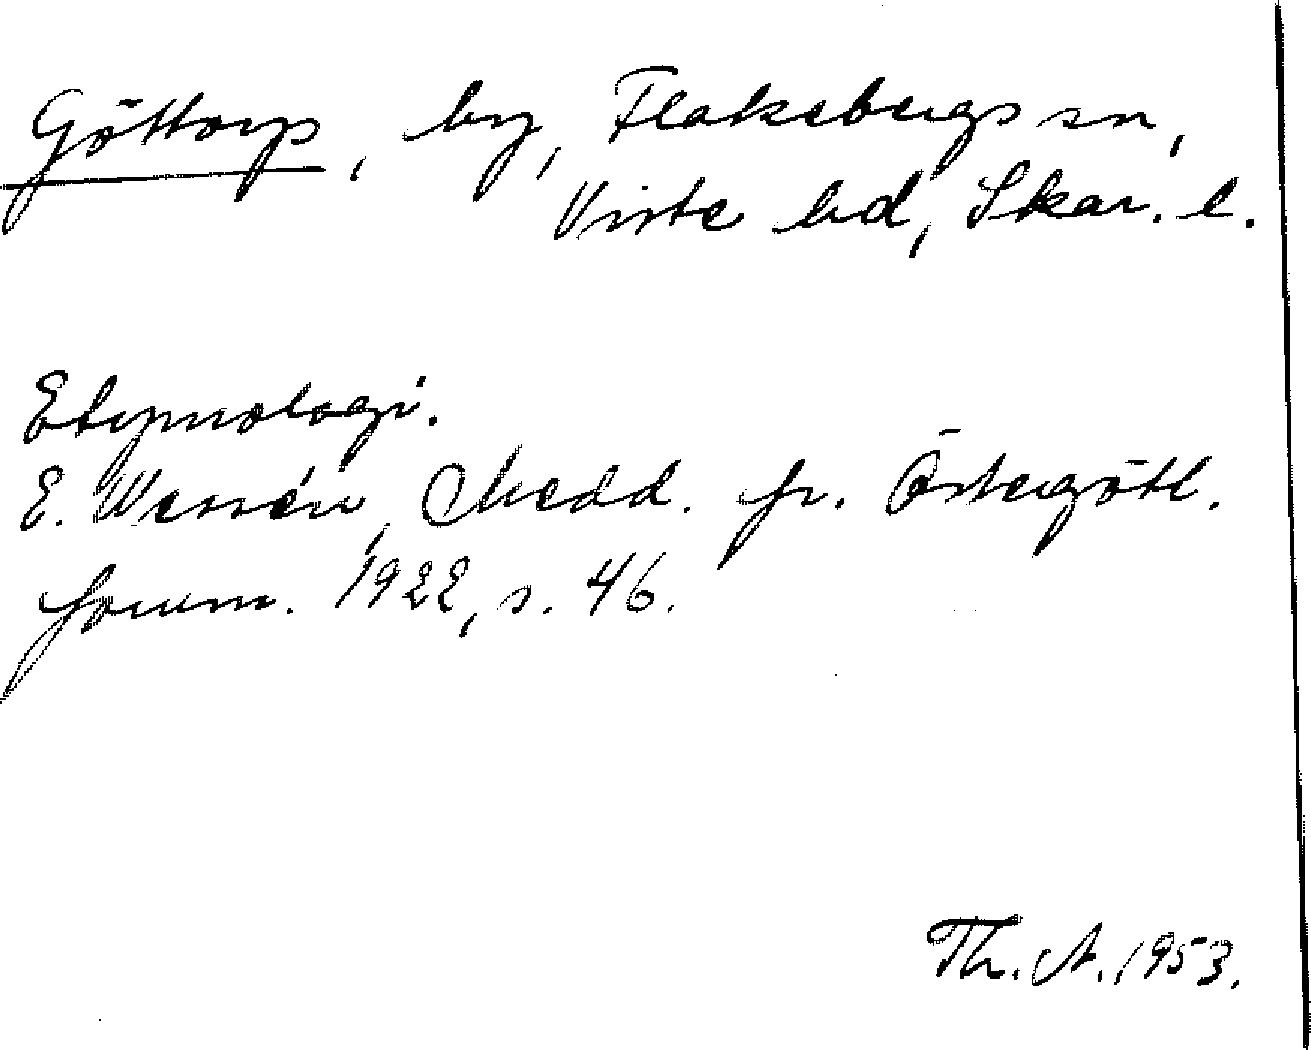 Göttorp, by, Flakebergs sn,
Viste hd, Skar. l.
Etymologi.
E. Wessén, Medd. fr. Östergötl.
fornm. 1922, s. 46.
Th. A. 1953.